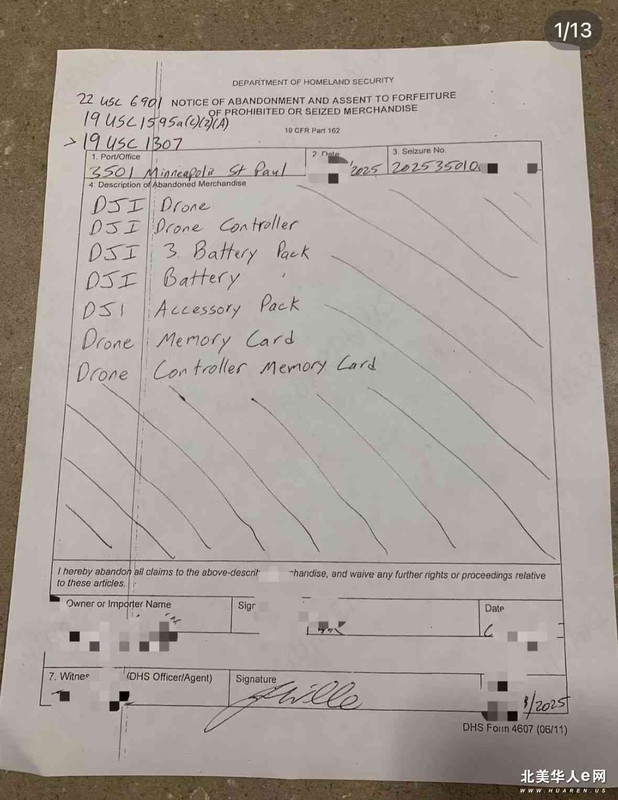 1/13
DEPARTMENT OF HOMELAND SECURITY
22 USC 6901 NOTICE OF ABANDONMENT AND ASSENT TO FORFEITURE
19 USC 1595a(c)(2)(A) OF PROHIBITED OR SEIZED MERCHANDISE
> 19 USC 1307 19 CFR Part 162
1. Port/Office 2. Date 3. Seizure No.
3501 Minneapolis St Paul 2025 202535010
4. Description of Abandoned Merchandise
DJI Drone
DJI Drone Controller
DJI 3 Battery Pack
DJI Battery
DJI Accessory Pack
Drone Memory Card
Drone Controller Memory Card
I hereby abandon all claims to the above-descri handise, and waive any further rights or proceedings relative
to these articles.
Owner or Importer Name Sign Date
7. Witnes (DHS Officer/Agent) Signature
/2025
DHS Form 4607 (06/11)
北美华人e网
WWW.HUAREN.US